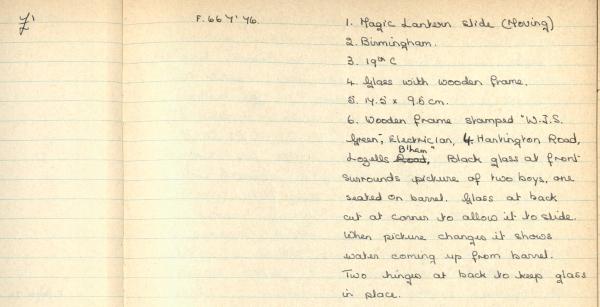 F. 66 Y' 76.
1. Magic Lantern Slide (Moving)
2. Birmingham.
3. 19th C
4. Glass with wooden frame.
5. 14.5 x 9.6 cm.
6. Wooden frame stamped "W.J.S.
Green", Electrician, 4 Hartington Road,
Lozells Road, B'ham" Black glass at front
surrounds picture of two boys, one
seated on barrel. Glass at back
cut at corner to allow it to slide.
When picture changes it shows
water coming up from barrel.
Two hinges at back to keep glass
in place.